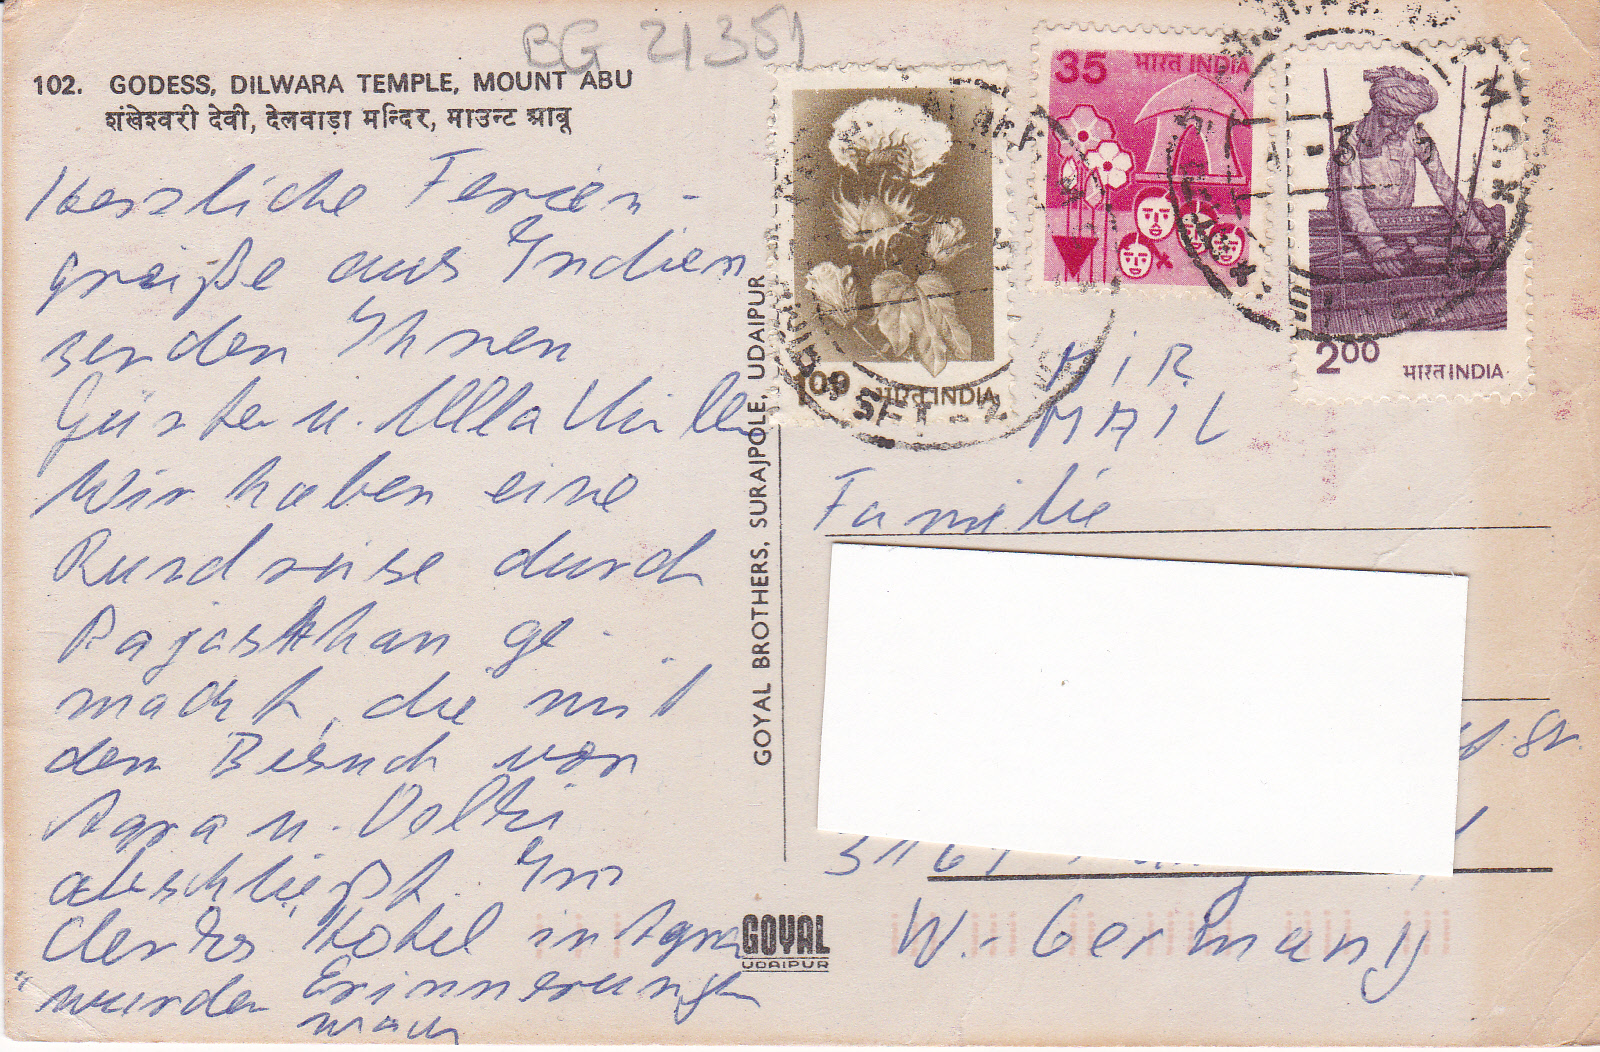 BG 21351
102. GODESS, DILWARA TEMPLE, MOUNT ABU
शंखेश्वरी देवी, देलवाड़ा मन्दिर, माउन्ट आबू
Herzliche Ferien-
grüße aus Indien
senden Ihnen
Günter u. Ulla
Wir haben eine
Rundreise durch
Rajasthan ge-
macht, die mit
dem Besuch von
Agra u. Delhi
abschließt. Im
Clarks Hotel in Agra
wurden Erinnerungen
wach
GOYAL BROTHERS, SURAJPOLE, UDAIPUR
GOYAL
UDAIPUR
1.00 भारत INDIA
35 भारत INDIA
2.00 भारत INDIA
AIR
MAIL
Familie
W.-Germany